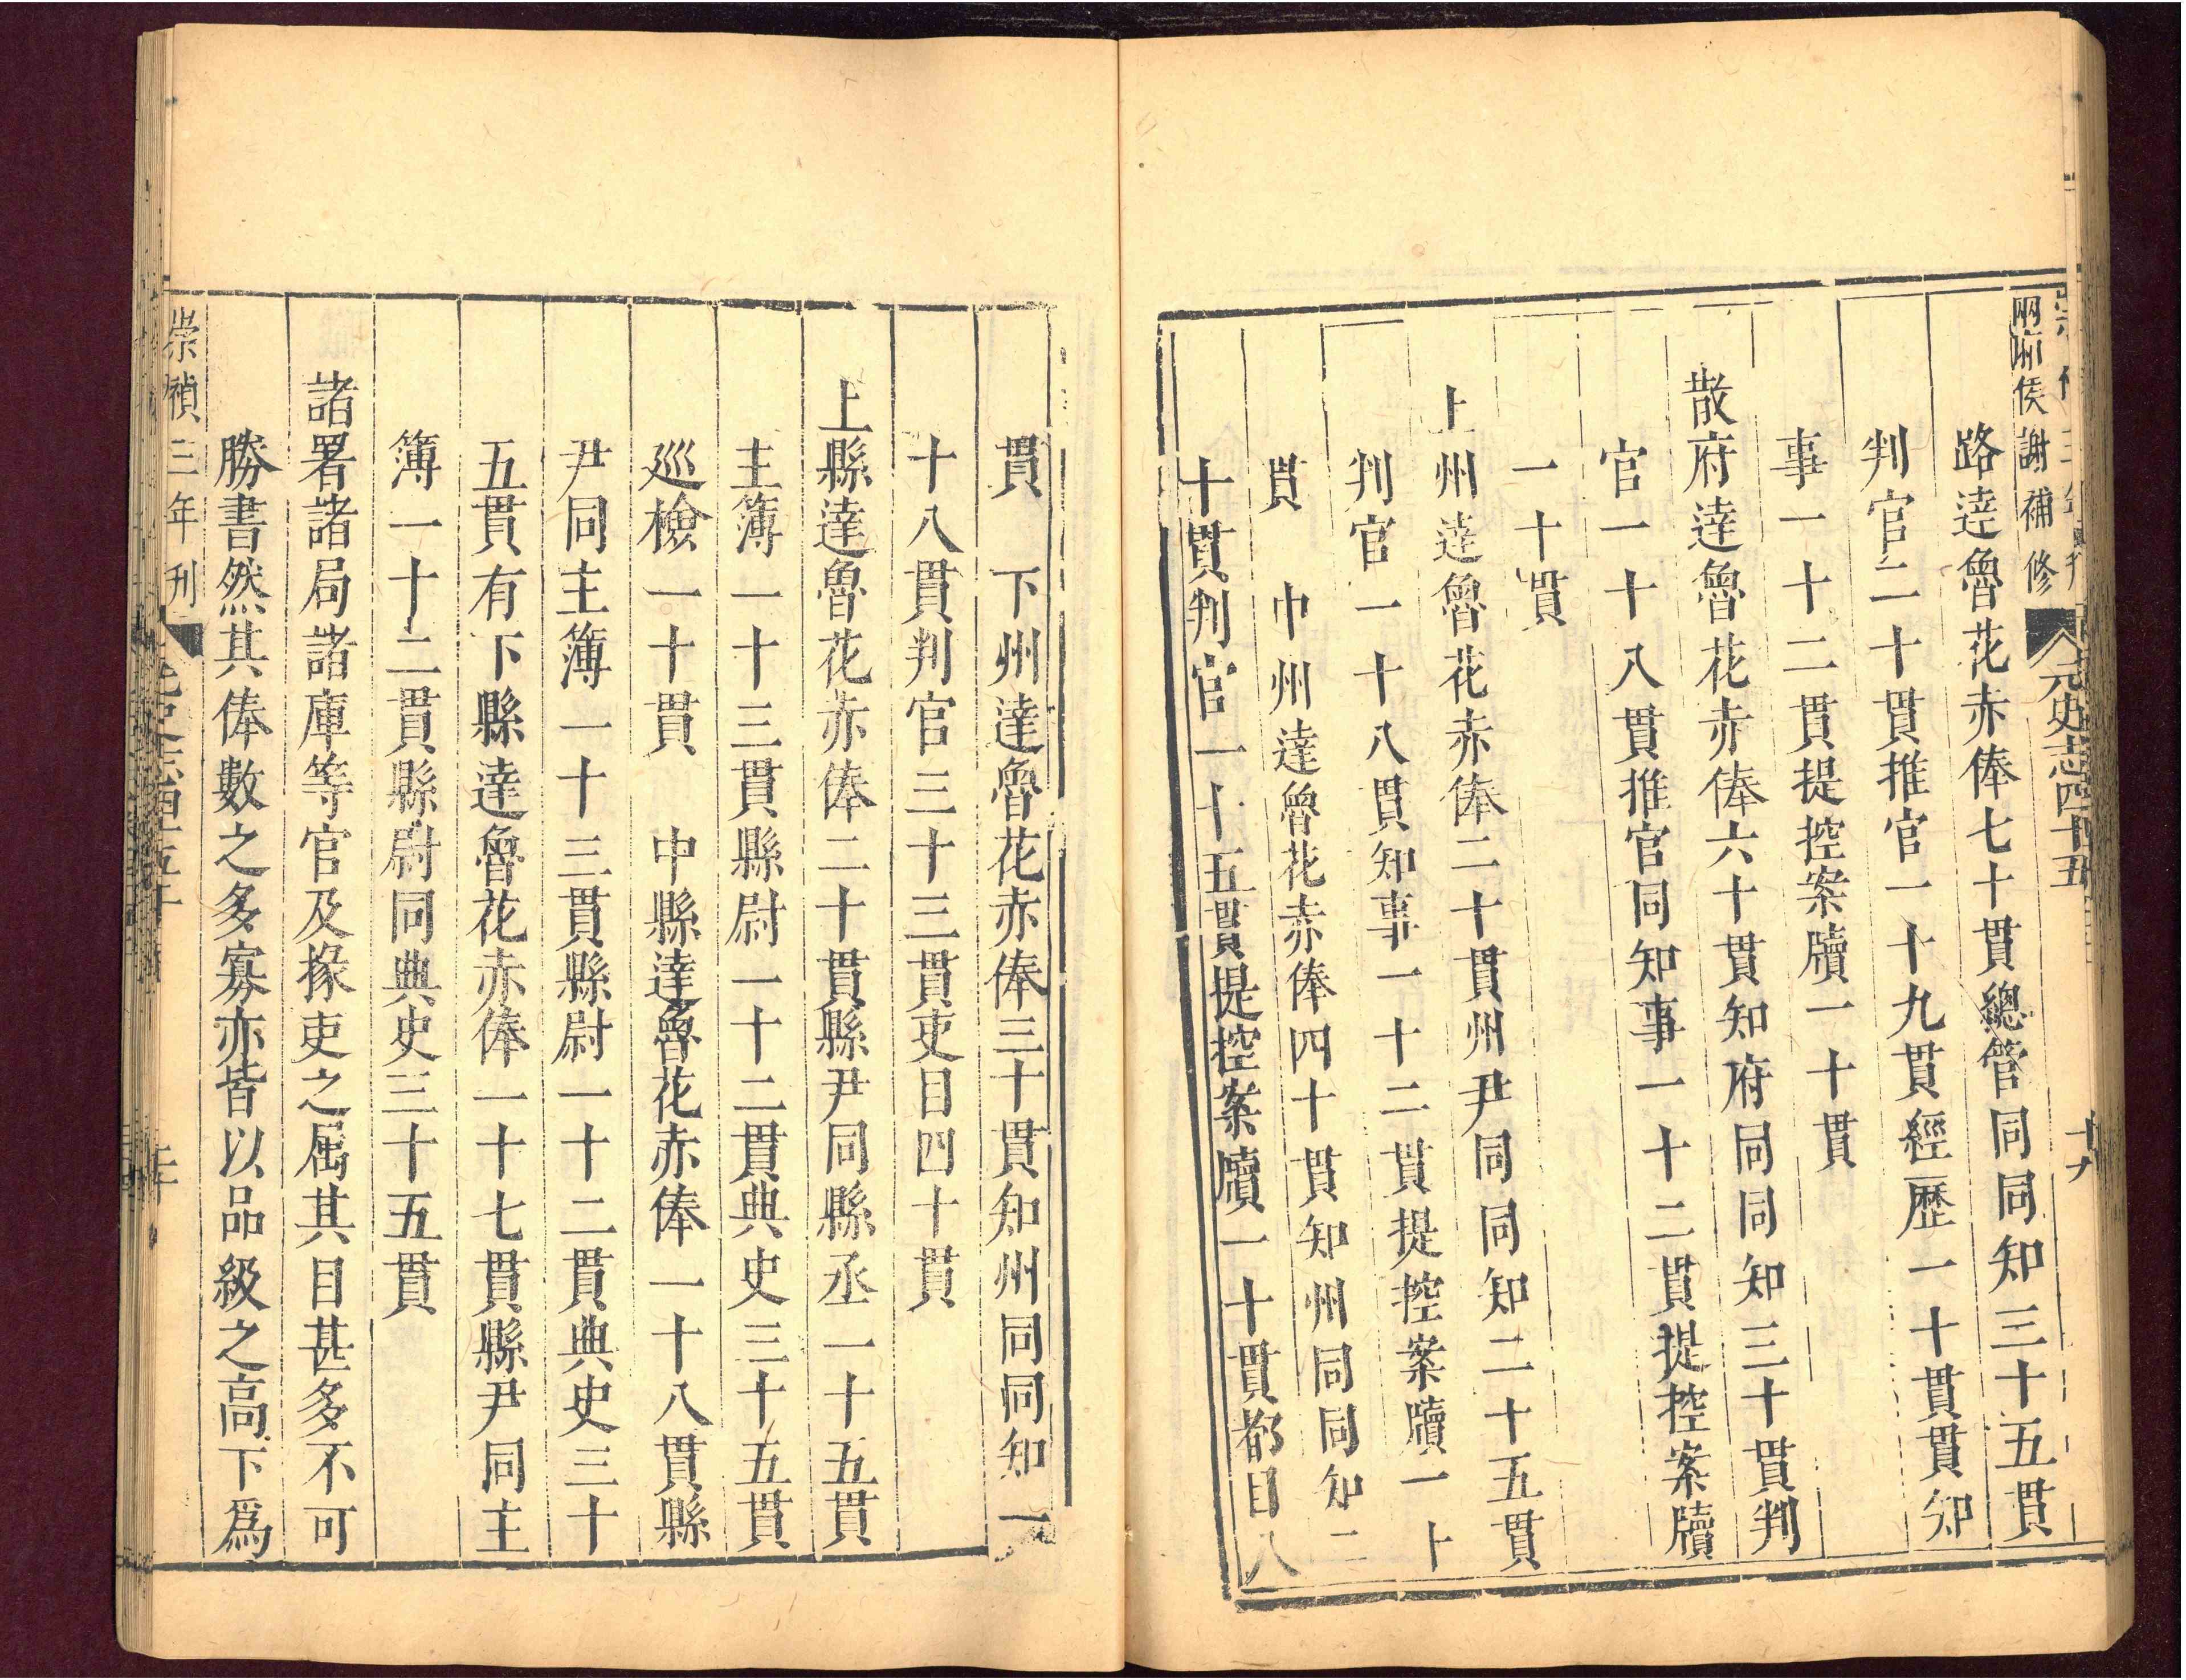 兩
侯謝補修
元史志四十五
十九
路達魯花赤俸七十貫總管同同知三十五貫
判官二十貫推官一十九貫經歷一十貫貫知
事一十二貫提控案牘一十貫
散府達魯花赤俸六十貫知府同同知三十貫判
官一十八貫推官同知事一十二貫提控案牘
一十貫
上州達魯花赤俸二十貫州尹同同知二十五貫
判官一十八貫知事一十二貫提控案牘一十
貫　中州達魯花赤俸四十貫知州同同知二
十貫判官一十五貫提控案牘一十貫都目八
貫　下州達魯花赤俸三十貫知州同同知一
十八貫判官三十三貫吏目四十貫
上縣達魯花赤俸二十貫縣尹同縣丞一十五貫
主簿一十三貫縣尉一十二貫典史三十五貫
巡檢一十貫　中縣達魯花赤俸一十八貫縣
尹同主簿一十三貫縣尉一十二貫典史三十
五貫有下縣達魯花赤俸一十七貫縣尹同主
簿一十二貫縣尉同典史三十五貫
諸署諸局諸庫等官及掾吏之属其目甚多不可
勝書然其俸數之多寡亦皆以品級之高下爲
崇禎三年刊